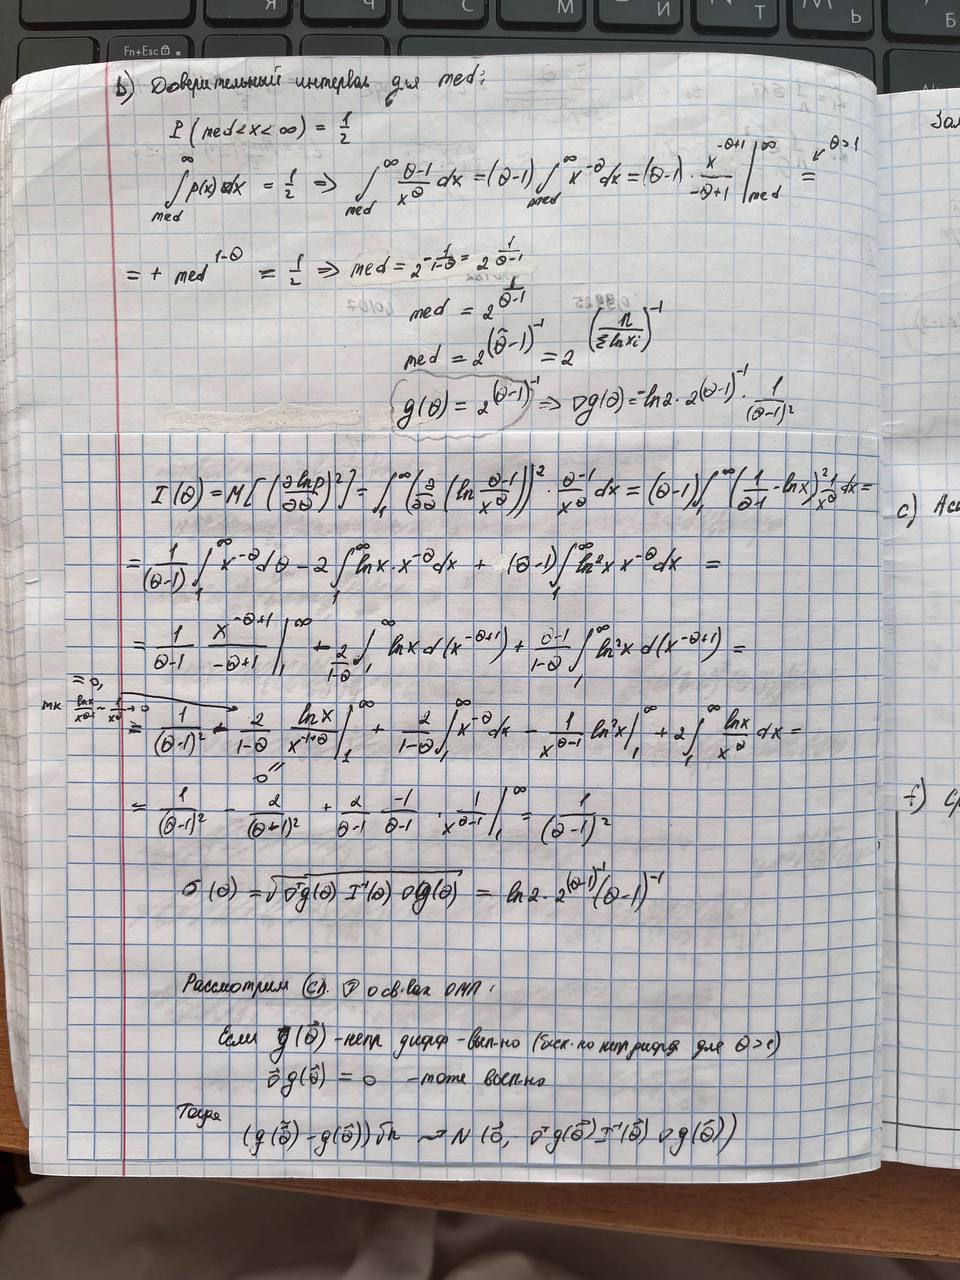 С М И Т Ь Б
Fn+Esc
b) Доверительный интервал для med:
P(med<x<∞) = 1/2
∫_med^∞ p(x)dx = 1/2 => ∫_med^∞ (θ-1)/x^θ dx = (θ-1) ∫_med^∞ x^-θ dx = (θ-1) · x^(-θ+1)/(-θ+1) |_med^∞ = θ>1
= + med^(1-θ) = 1/2 => med = 2^(-1/(1-θ)) = 2^(1/(θ-1))
med = 2^(1/(θ̃-1))
med = 2^((θ̃-1)^-1) = 2^((n/Σlnxi)^-1)
g(θ) = 2^((θ-1)^-1) => ∇g(θ) = -ln2 · 2^((θ-1)^-1) · 1/(θ-1)^2
I(θ) = M[(∂lnp/∂θ)^2] = ∫_1^∞ (∂/∂θ (ln (θ-1)/x^θ))^2 · (θ-1)/x^θ dx = (θ-1) ∫_1^∞ (1/(θ-1) - lnx)^2 1/x^θ dx =
= 1/(θ-1) ∫_1^∞ x^-θ dθ - 2 ∫_1^∞ lnx · x^-θ dx + (θ-1) ∫_1^∞ ln^2x x^-θ dx =
= 1/(θ-1) x^(-θ+1)/(-θ+1) |_1^∞ - 2/(1-θ) ∫_1^∞ lnx d(x^(-θ+1)) + (θ-1)/(1-θ) ∫_1^∞ ln^2x d(x^(-θ+1)) =
= 0,
тк lnx/x^(θ-1) ~ 1/x^θ → 0
= 1/(θ-1)^2 - 2/(1-θ) lnx/x^(-1+θ) |_1^∞ + 2/(1-θ) ∫_1^∞ x^-θ dx - 1/x^(θ-1) ln^2x |_1^∞ + 2 ∫_1^∞ lnx/x^θ dx =
0
= 1/(θ-1)^2 - 2/(θ-1)^2 + 2/(θ-1) -1/(θ-1) · 1/x^(θ-1) |_1^∞ = 1/(θ-1)^2
σ(θ) = √(∇^T g(θ) I^-1(θ) ∇g(θ)) = ln2 · 2^((θ-1)^-1) (θ-1)^-1
Рассмотрим о св-вах ОМП:
Если g(θ⃗) - непр дифф - вып-но (беск-но непр дифф для θ>1)
∇g(θ⃗) = 0 - тоже вып-но
Тогда
(g(θ̃) - g(θ⃗))√n ~ N(0⃗, ∇^T g(θ⃗) I^-1(θ⃗) ∇g(θ⃗))
c)
f)